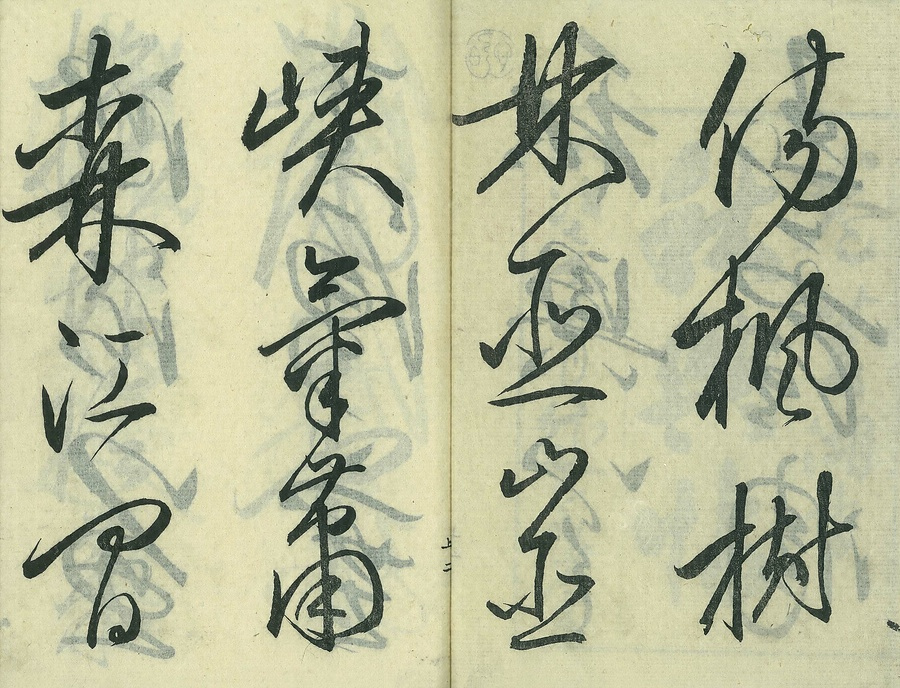 傷楓樹
林巫山巫
峽氣蕭
森江間
上二